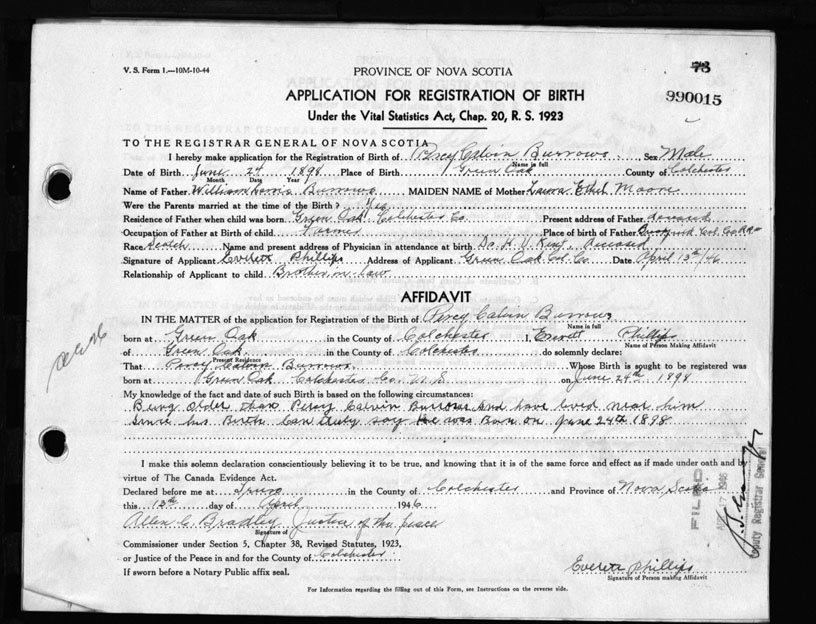 V. S. Form 1.—10M-10-44
73
PROVINCE OF NOVA SCOTIA
990015
APPLICATION FOR REGISTRATION OF BIRTH
Under the Vital Statistics Act, Chap. 20, R. S. 1923
TO THE REGISTRAR GENERAL OF NOVA SCOTIA
I hereby make application for the Registration of Birth of Percy Calvin Burrows Sex Male
Name in full
Date of Birth June 24 1898 Place of Birth Green Oak County of Colchester
Month Date Year
Name of Father William Burrows MAIDEN NAME of Mother Laura Ethel Moore
Were the Parents married at the time of Birth? Yes
Residence of Father when child was born Green Oak Colchester Co Present address of Father deceased
Occupation of Father at Birth of child Farmer Place of birth of Father Col. Co
Race Scotch Name and present address of Physician in attendance at birth Dr. H. V. Kent, deceased
Signature of Applicant Everett Phillips Address of Applicant Green Oak Col. Co. Date April 13th/46
Relationship of Applicant to child Brother in Law
AFFIDAVIT
IN THE MATTER of the application for Registration of the Birth of Percy Calvin Burrows
Name in full
born at Green Oak in the County of Colchester I, Everett Phillips
Name of Person Making Affidavit
of Green Oak in the County of Colchester do solemnly declare:
Present Residence
That Percy Calvin Burrows Whose Birth is sought to be registered was
born at Green Oak Colchester Co. N. S. on June 24th 1898
My knowledge of the fact and date of such Birth is based on the following circumstances:
Being older than Percy Calvin Burrows And have lived near him
Since his Birth Can truly say He was Born on June 24th 1898
I make this solemn declaration conscientiously believing it to be true, and knowing that it is of the same force and effect as if made under oath and by
virtue of The Canada Evidence Act.
Declared before me at Truro in the County of Colchester and Province of Nova Scotia
this 13th day of April 1946
Allen C. Bradley Justice of the peace
Signature of
Commissioner under Section 5, Chapter 38, Revised Statutes, 1923,
or Justice of the Peace in and for the County of Colchester
If sworn before a Notary Public affix seal.
Everett Phillips
Signature of Person making Affidavit
For Information regarding the filling out of this Form, see Instructions on the reverse side.
FILED
17 1946
Deputy Registrar General